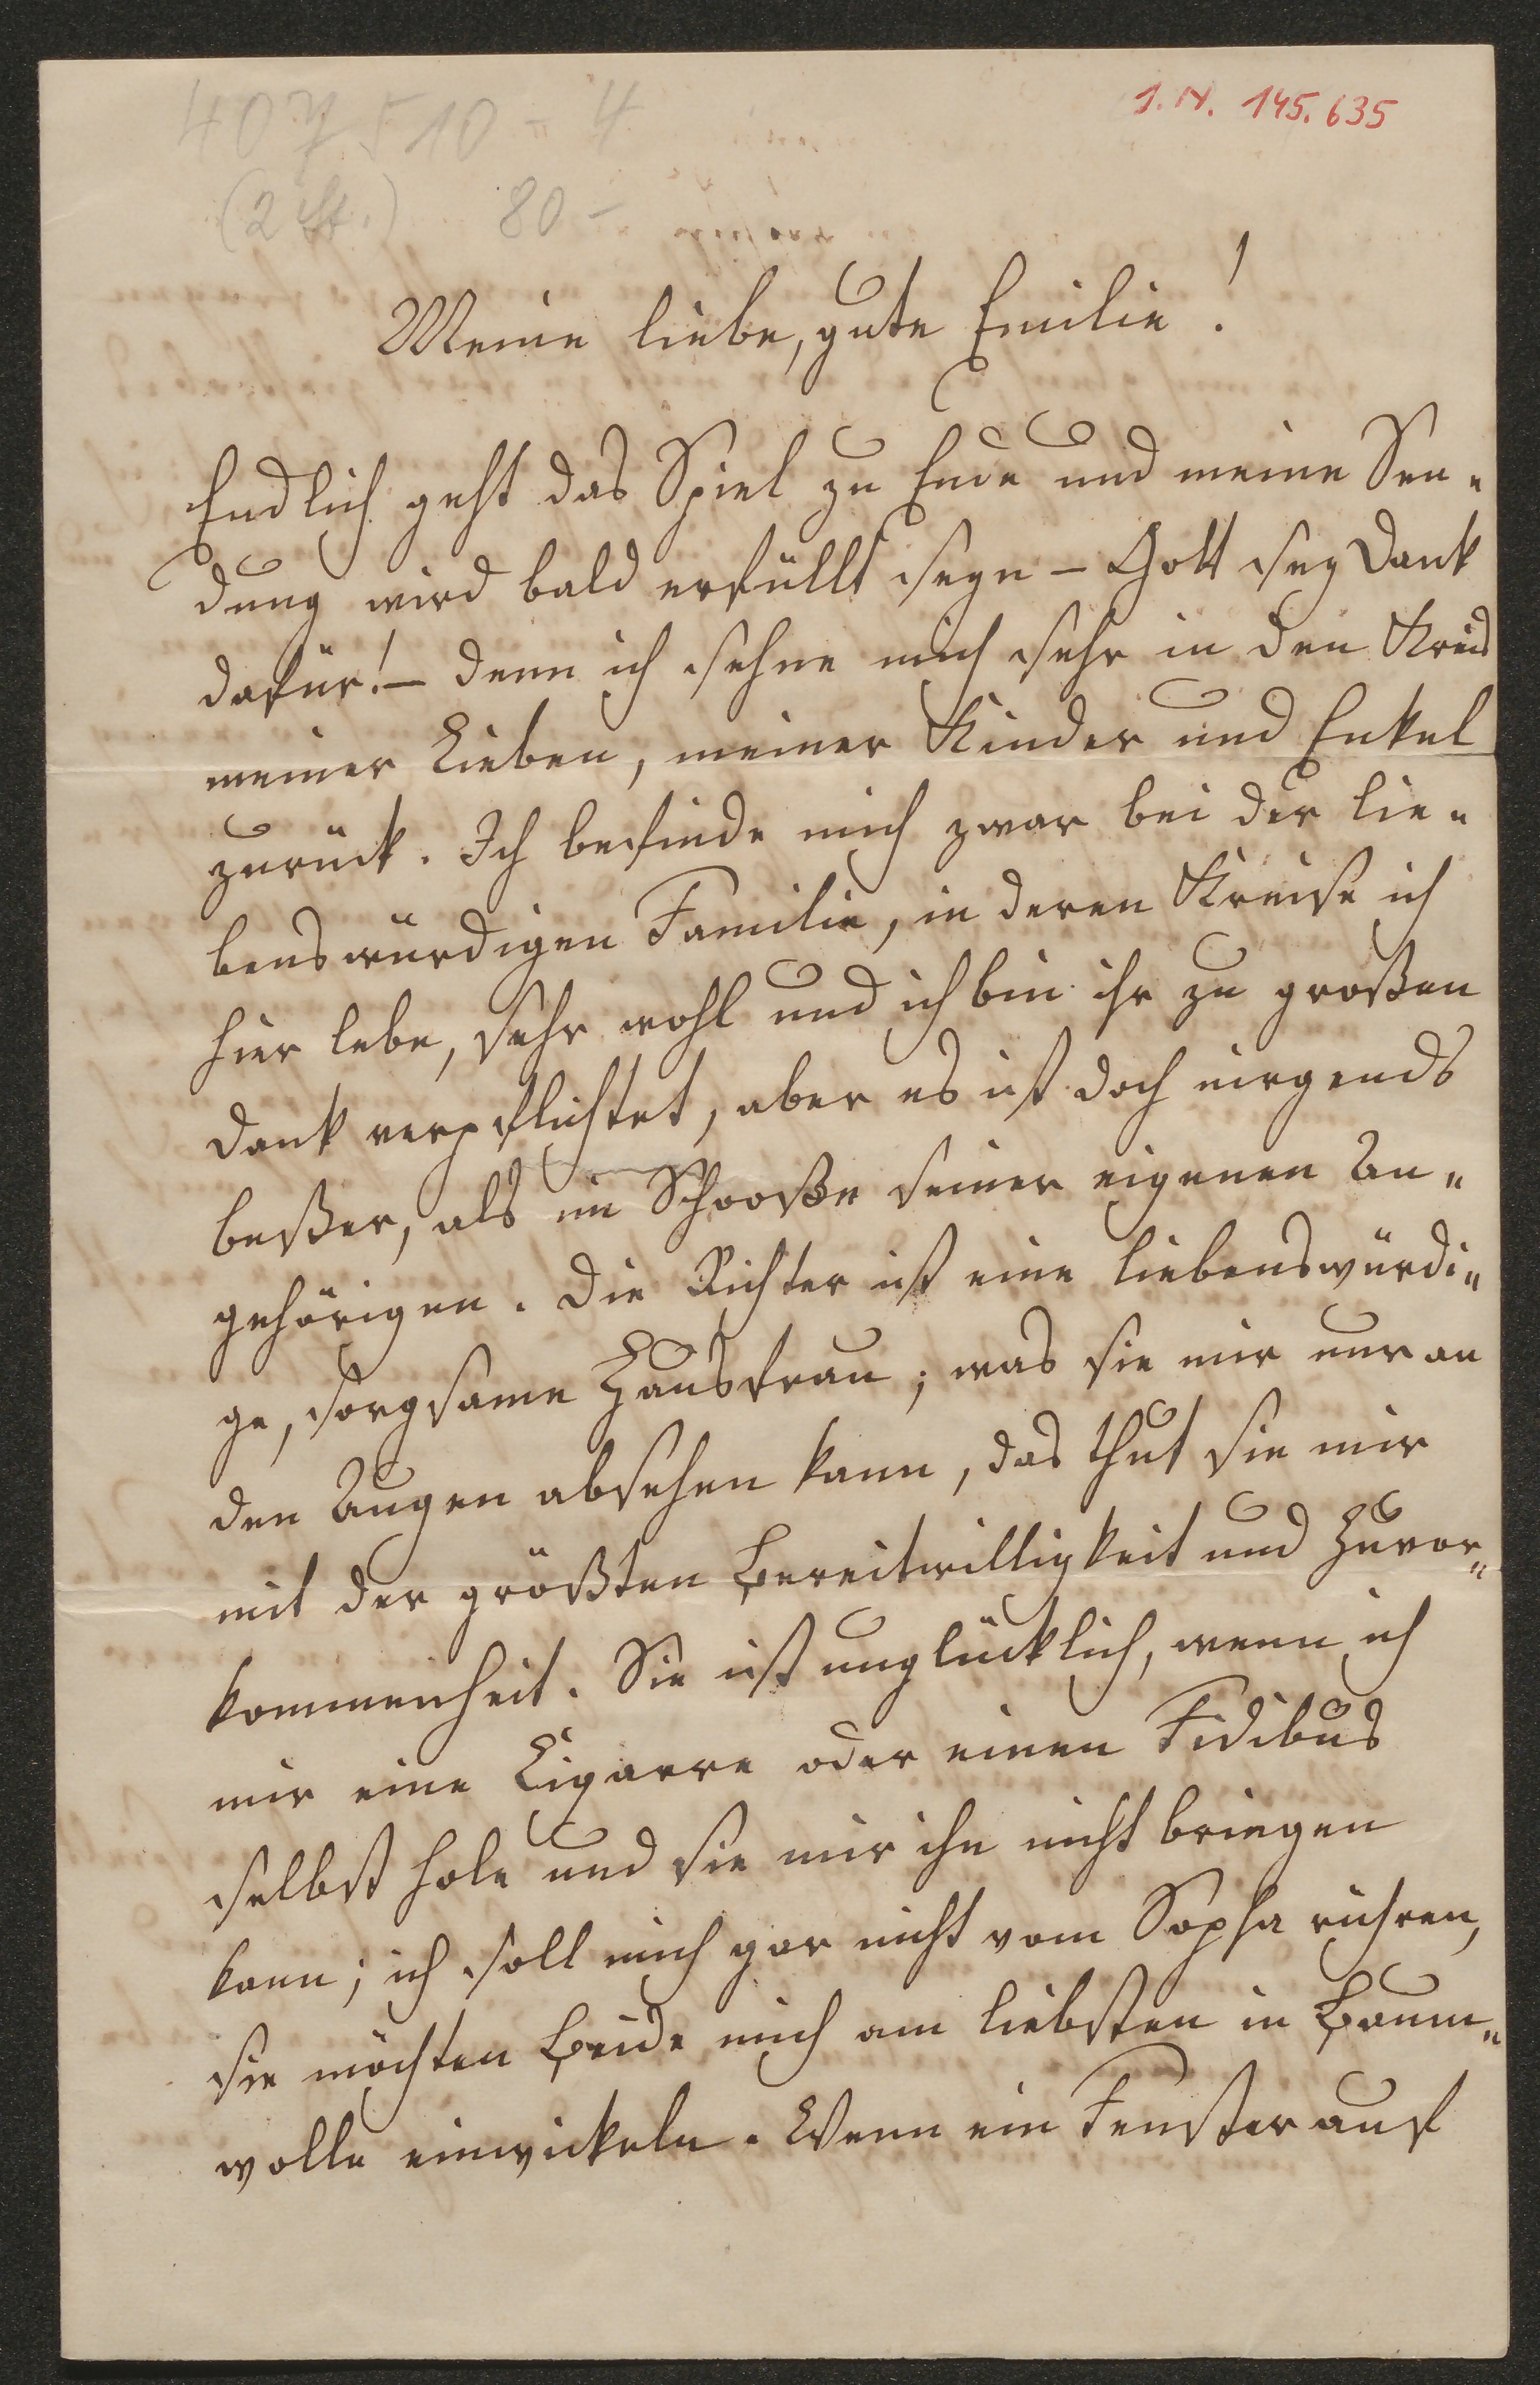 407510-4
I. N. 145.635
(2 St.) 80-
Meine liebe, gute Emilie!
Endlich geht das Spiel zu Ende und meine Sen-
dung wird bald erfüllt seyn - Gott sey Dank
dafür! - denn ich sehne mich sehr in den Kreis
meiner Lieben, meiner Kinder und Enkel
zurück. Ich befinde mich zwar bei der lie-
benswürdigen Familie, in deren Kreise ich
hier lebe, sehr wohl und ich bin ihr zu großen
Dank verpflichtet, aber es ist doch nirgends
beßer, als im Schooße seiner eigenen An-
gehörigen. Die Richter ist eine liebenswürdi-
ge, sorgsame Hausfrau; was sie mir nur an
den Augen absehen kann, das thut sie mir
mit der größten Bereitwilligkeit und Zuvor-
kommenheit. Sie ist unglücklich, wenn ich
mir eine Cigarre oder einen Fidibus
selbst hole und sie mir ihn nicht bringen
kann; ich soll mich gar nicht vom Sopha rühren,
sie möchten Beide mich am liebsten in Baum-
wolle einwickeln. Wenn ein Fenster auf